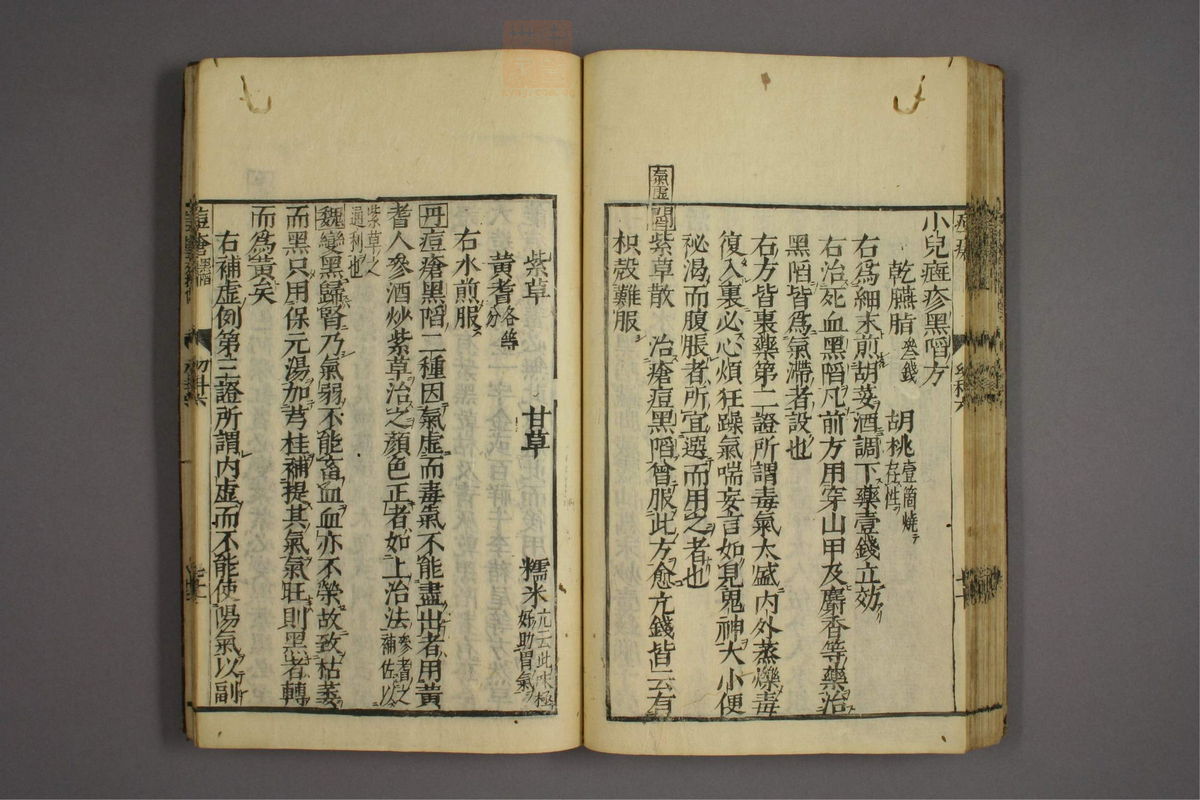 小兒斑疹黑陷方
乾臙脂叁錢 胡桃壹箇燒存性
右爲細末煎胡荽酒調下藥壹錢立效
右治死血黑陷凡前方用穿山甲及麝香等藥治
黑陷皆爲氣滯者設也
右方皆裏藥第二證所謂毒氣太盛內外蒸爍毒
復入裏必心煩狂躁氣喘妄言如見鬼神大小便
祕渴而腹脹者所宜選而用之者也
氣虛
閻紫草散 治瘡痘黑陷曾服此方愈亢錢皆云有
枳殼難服
紫草 甘草 糯米亢云此味極好助胃氣
黃耆各等分
右水煎服
丹痘瘡黑陷二種因氣虛而毒氣不能盡出者用黃
耆人參酒炒紫草治之顏色正者如上治法參耆之補佐以
紫草之通利也
魏變黑歸腎乃氣弱不能畜血血亦不榮故致枯萎
而黑只用保元湯加芎桂補提其氣氣旺則黑者轉
而爲黃矣
右補虛例第三證所謂內虛而不能使陽氣以副